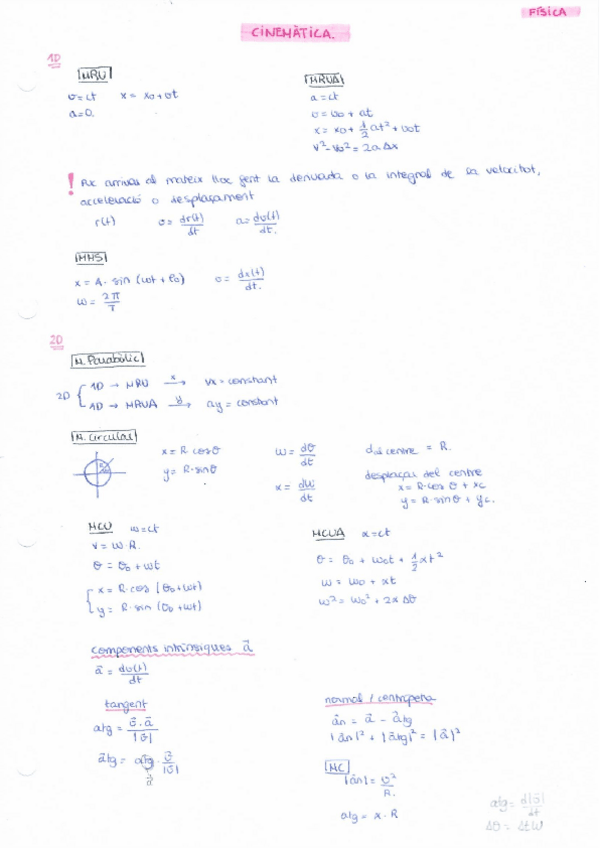 FÍSICA
CINEMÀTICA.
1D
MRU
v = ct x = x0 + vt
a = 0.
MRUA
a = ct
v = v0 + at
x = x0 + 1/2 at² + v0t
v² - v0² = 2aΔx
! Pots arribar al mateix lloc fent la derivada o la integral de la velocitat,
acceleració o desplaçament
r(t) v = dr(t)/dt a = dv(t)/dt.
MHS
x = A · sin (ωt + φ0) v = dx(t)/dt.
ω = 2π/T
2D
M. Parabòlic
2D { 1D → MRU x→ vx = constant
1D → MRUA y→ ay = constant
M. Circular
x = R · cosθ ω = dθ/dt del centre = R.
y = R · sinθ α = dω/dt desplaçat del centre
x = R · cosθ + xc
y = R · sinθ + yc.
MCU ω = ct
v = ω · R.
θ = θ0 + ωt
{ x = R · cos (θ0 + ωt)
y = R · sin (θ0 + ωt)
MCUA α = ct
θ = θ0 + ω0t + 1/2 αt²
ω = ω0 + αt
ω² = ω0² + 2α Δθ
components intrínsiques a⃗
a⃗ = dv(t)/dt
tangent
atg = v⃗ · a⃗ / |v⃗|
a⃗tg = atg · v⃗/|v⃗|
normal / centrípeta
a⃗n = a⃗ - a⃗tg
|a⃗n|² + |a⃗tg|² = |a⃗|²
MC
|a⃗n| = v²/R.
atg = α · R
atg = d|v⃗|/dt
Δθ = Δt ω